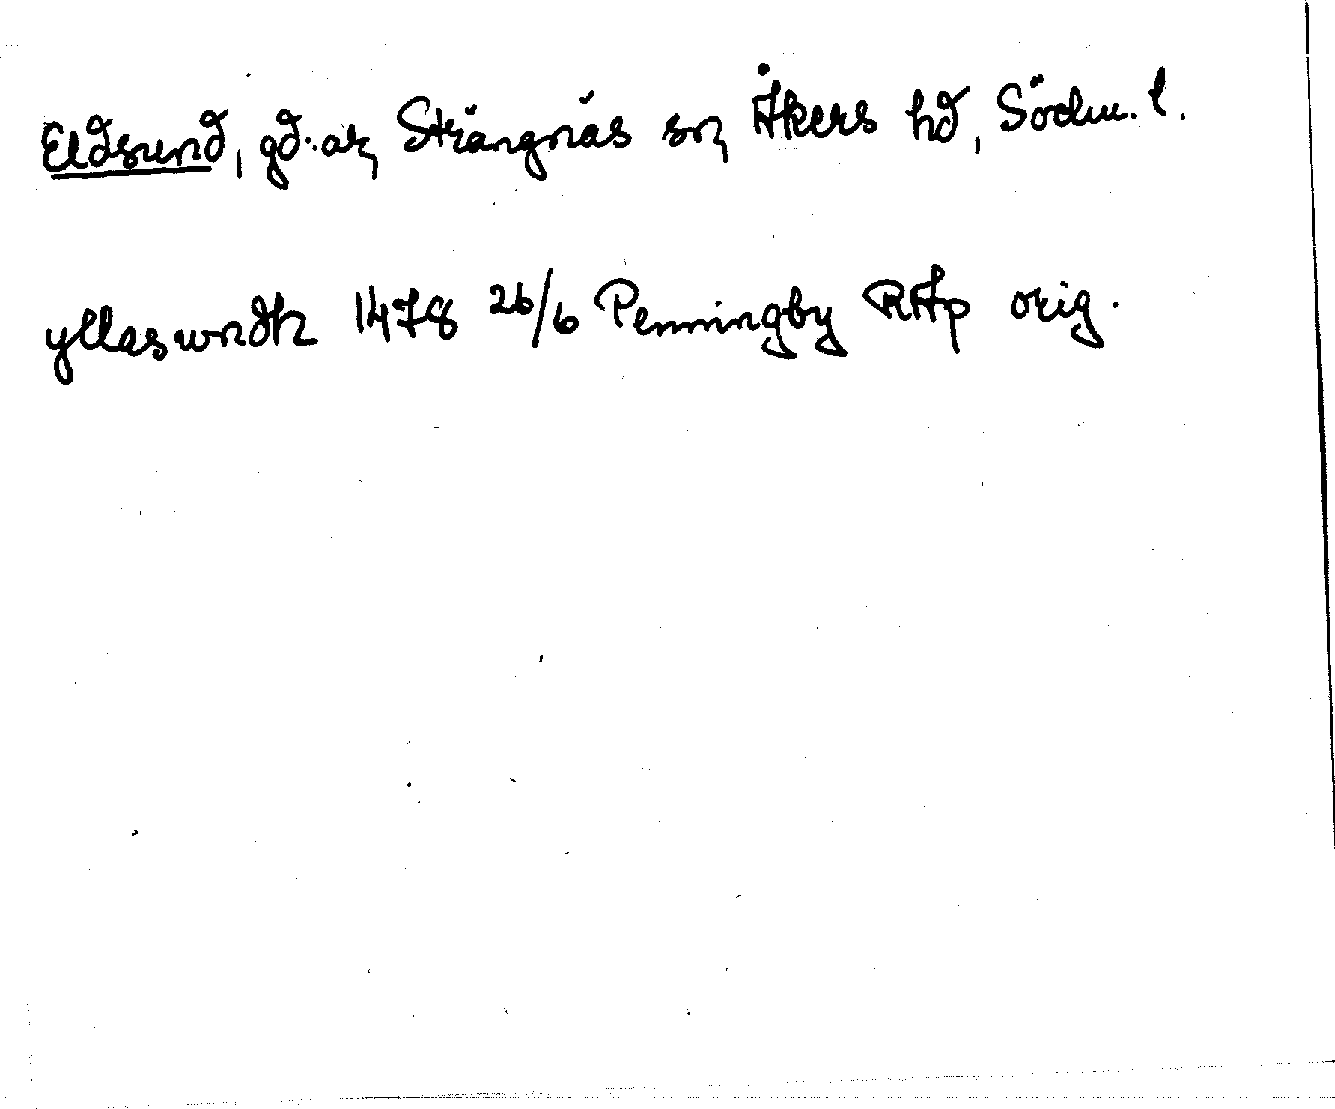 Eldsund, gd. ar, Strängnäs sn, Åkers hd, Södm. l.
yllaswndh 1478 26/6 Penningby RAp orig.